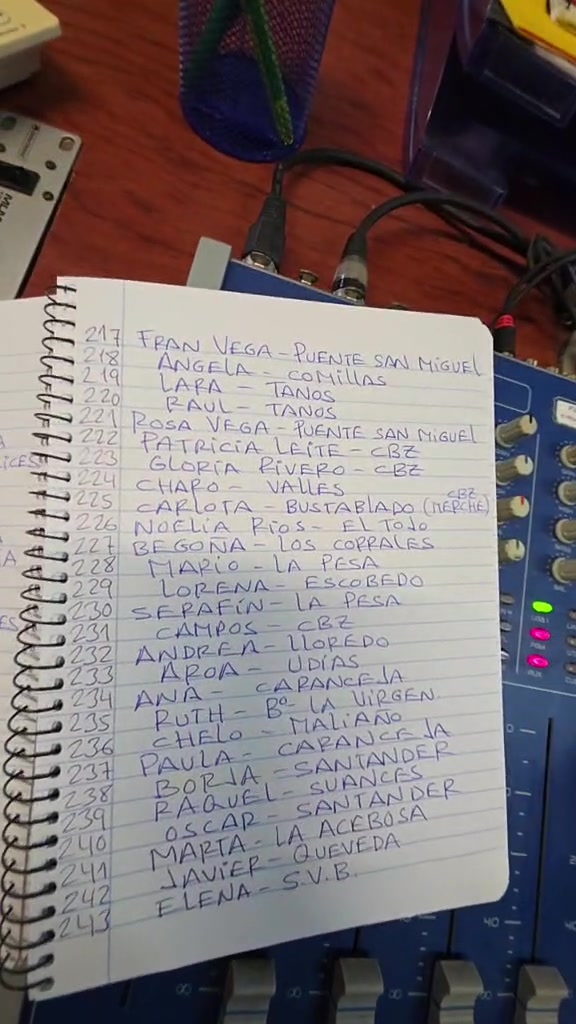 217 FRAN VEGA - PUENTE SAN MIGUEL
218 ANGELA - COMILLAS
219 LARA - TANOS
220 RAUL - TANOS
221 ROSA VEGA - PUENTE SAN MIGUEL
222 PATRICIA LEITE - CBZ
223 GLORIA RIVERO - CBZ
224 CHARO - VALLES
225 CARLOTA - BUSTABLADO (MERCHE) CBZ
226 NOELIA RIOS - EL TOJO
227 BEGOÑA - LOS CORRALES
228 MARIO - LA PESA
229 LORENA - ESCOBEDO
230 SERAFÍN - LA PESA
231 CAMPOS - CBZ
232 ANDREA - LLOREDO
233 AROA - UDÍAS
234 ANA - CARANCEJA
235 RUTH - Bº LA VIRGEN
236 CHELO - MALIAÑO
237 PAULA - CARANCEJA
238 BORJA - SANTANDER
239 RAQUEL - SUANCES
240 OSCAR - SANTANDER
241 MARTA - LA ACEBOSA
242 JAVIER - QUEVEDA
243 ELENA - S.V.B.